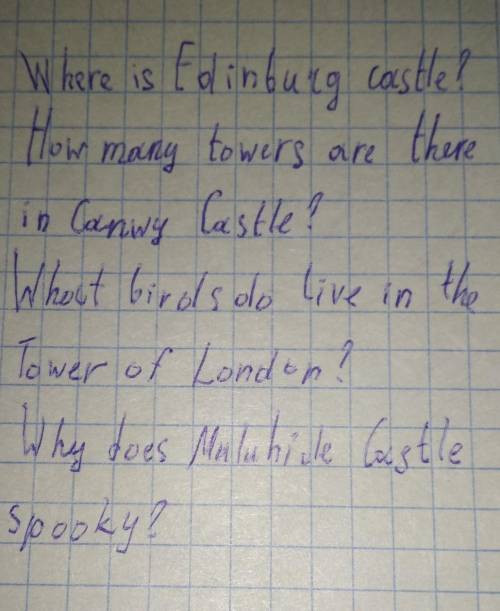 Where is Edinburg castle?
How many towers are there
in Canwy Castle?
What birds do live in the
Tower of London?
Why does Maluhide Castle
spooky?